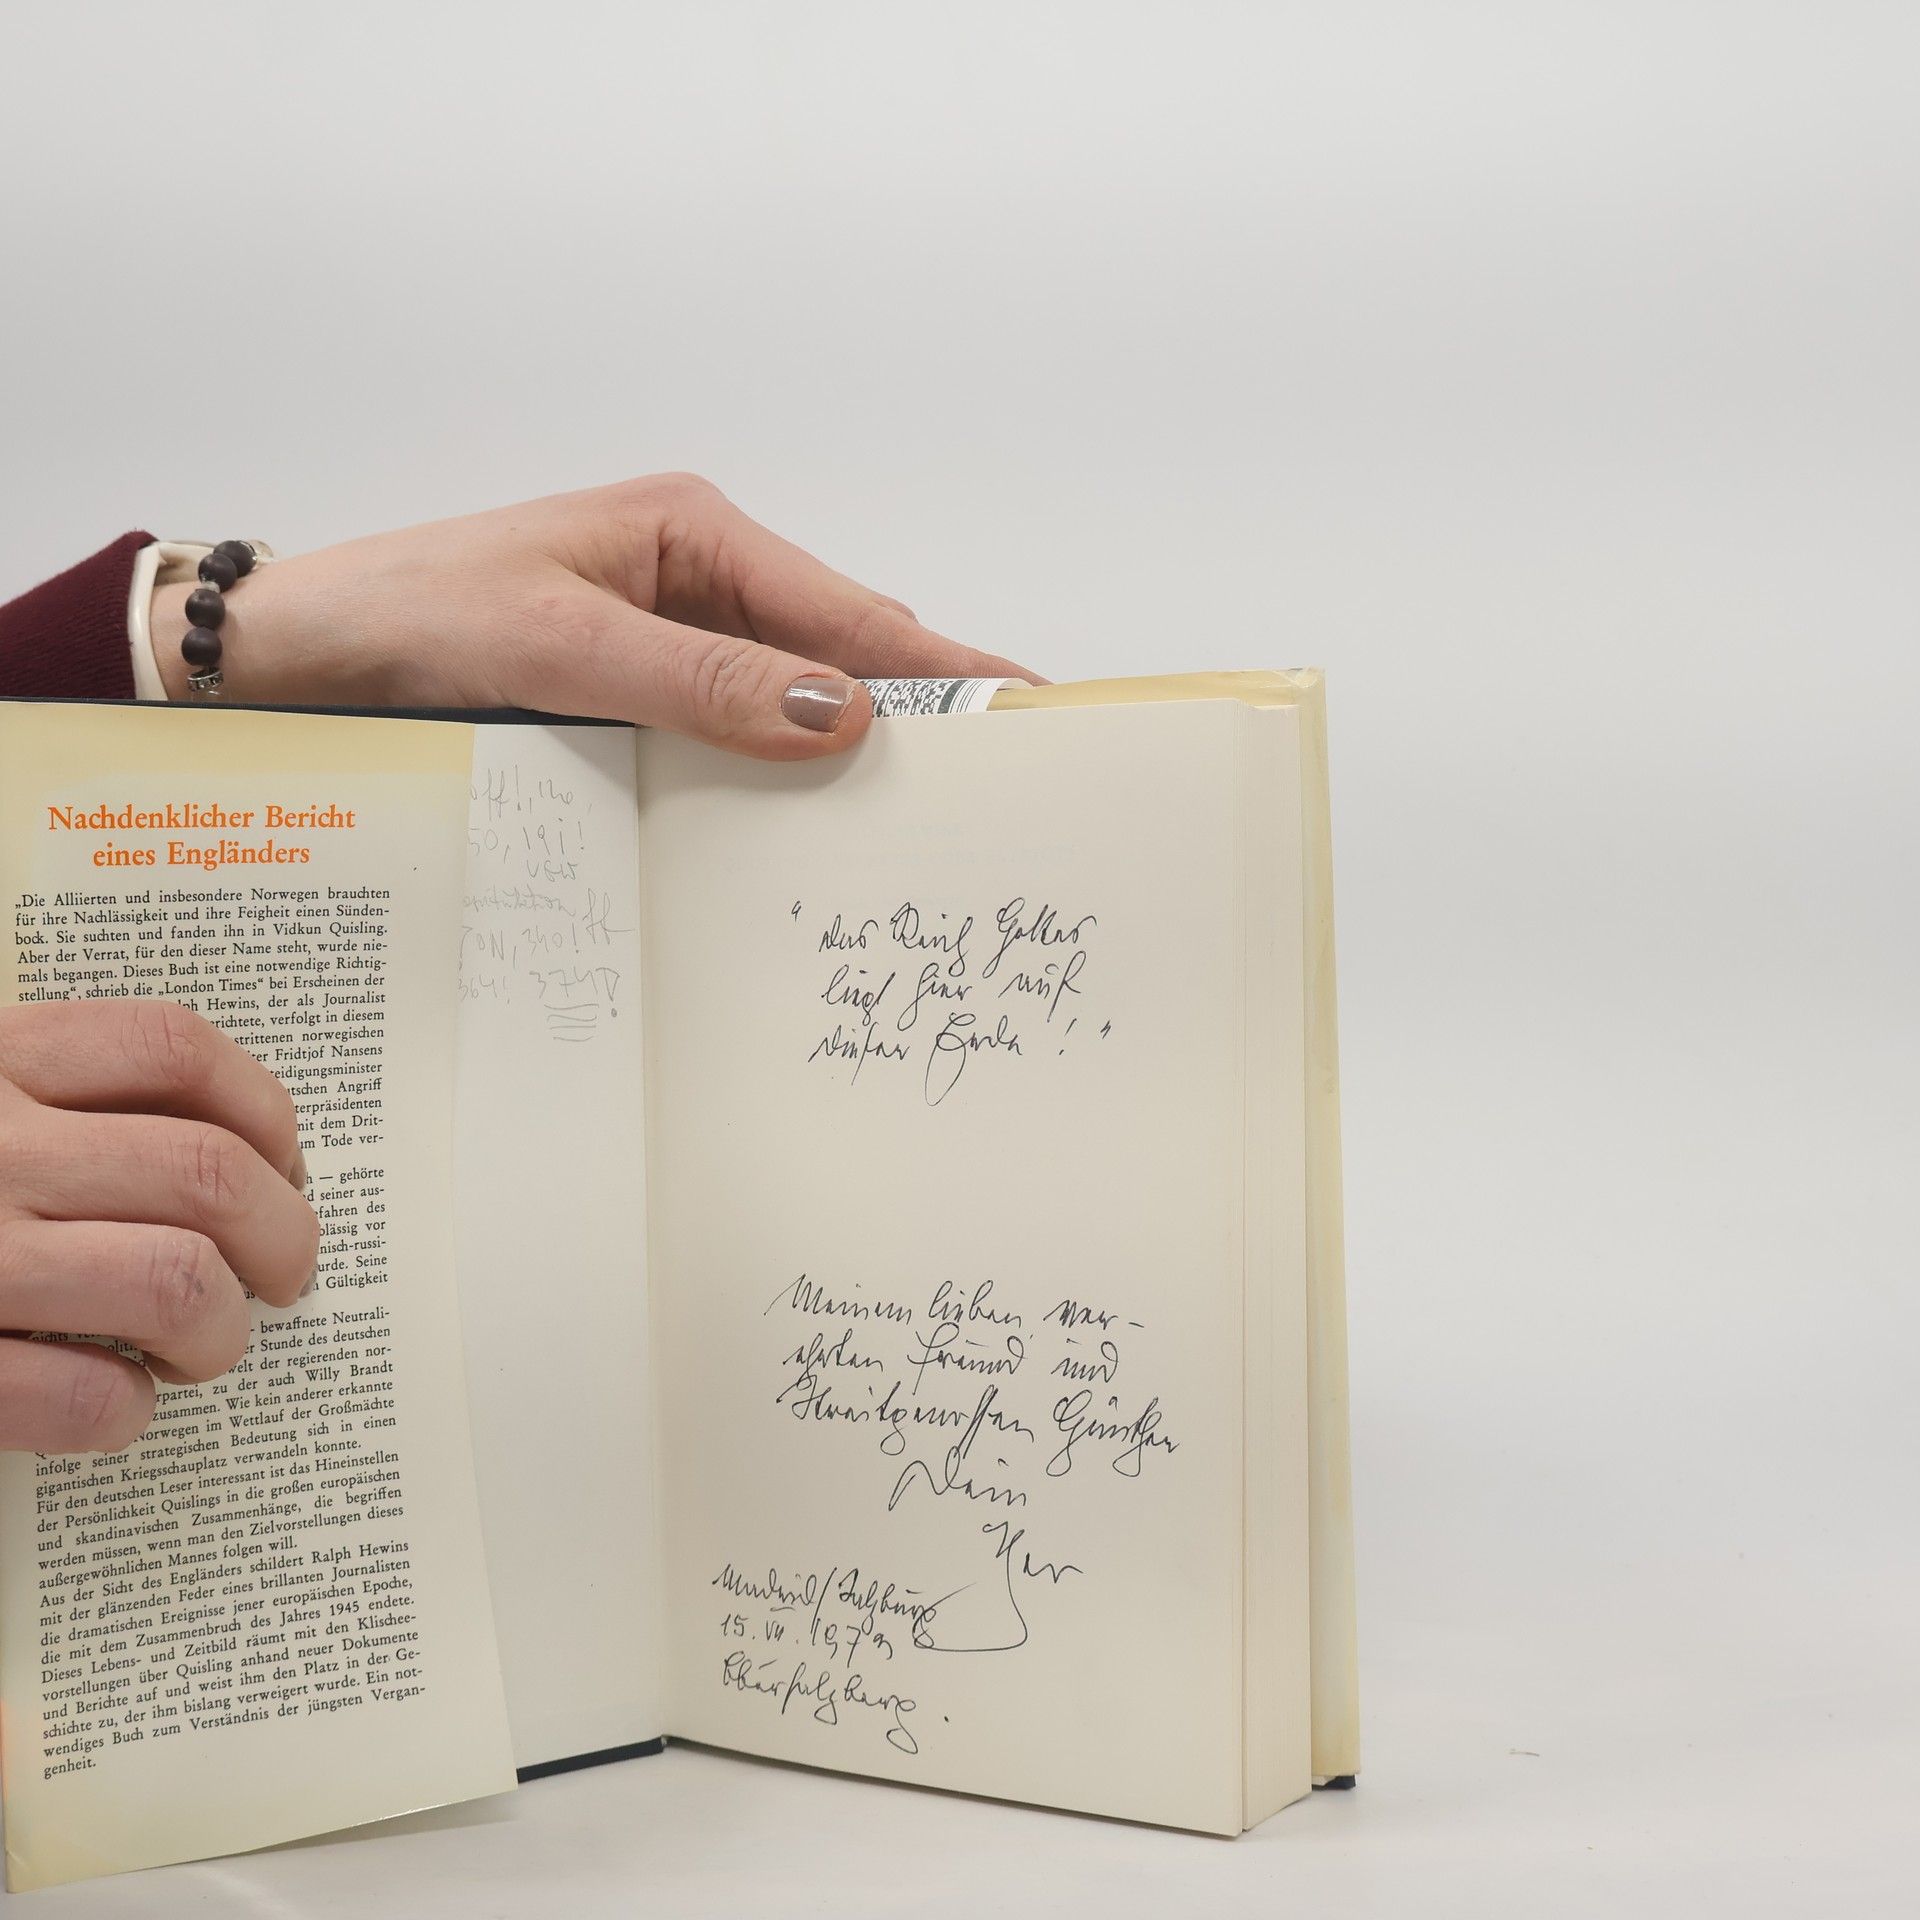 Nachdenklicher Bericht
eines Engländers
„Die Alliierten und insbesondere Norwegen brauchten
für ihre Nachlässigkeit und ihre Feigheit einen Sünden-
bock. Sie suchten und fanden ihn in Vidkun Quisling.
Aber der Verrat, für den dieser Name steht, wurde nie-
mals begangen. Dieses Buch ist eine notwendige Richtig-
stellung“, schrieb die „London Times“ bei Erscheinen der
Hewins, der als Journalist
verfolgt in diesem
norwegischen
Fridtjof Nansens
Angriff
mit dem Drit-
Tode ver-
— gehörte
seiner aus-
des
vor
Seine
Gültigkeit
bewaffnete Neutrali-
Stunde des deutschen
der regierenden nor-
zu der auch Willy Brandt
zusammen. Wie kein anderer erkannte
Norwegen im Wettlauf der Großmächte
infolge seiner strategischen Bedeutung sich in einen
gigantischen Kriegsschauplatz verwandeln konnte.
Für den deutschen Leser interessant ist das Hineinstellen
der Persönlichkeit Quislings in die großen europäischen
und skandinavischen Zusammenhänge, die begriffen
werden müssen, wenn man den Zielvorstellungen dieses
außergewöhnlichen Mannes folgen will.
Aus der Sicht des Engländers schildert Ralph Hewins
mit der glänzenden Feder eines brillanten Journalisten
die dramatischen Ereignisse jener europäischen Epoche,
die mit dem Zusammenbruch des Jahres 1945 endete.
Dieses Lebens- und Zeitbild räumt mit den Klischee-
vorstellungen über Quisling anhand neuer Dokumente
und Berichte auf und weist ihm den Platz in der Ge-
schichte zu, der ihm bislang verweigert wurde. Ein not-
wendiges Buch zum Verständnis der jüngsten Vergan-
genheit.
"das Reich Gottes
liegt hier auf
dieser Erde!"
Meinem lieben ver-
ehrten Freund und
Streitgenossen Günther
Dein
Madrid/Salzburg
15. VII. 1979
Obersalzberg.